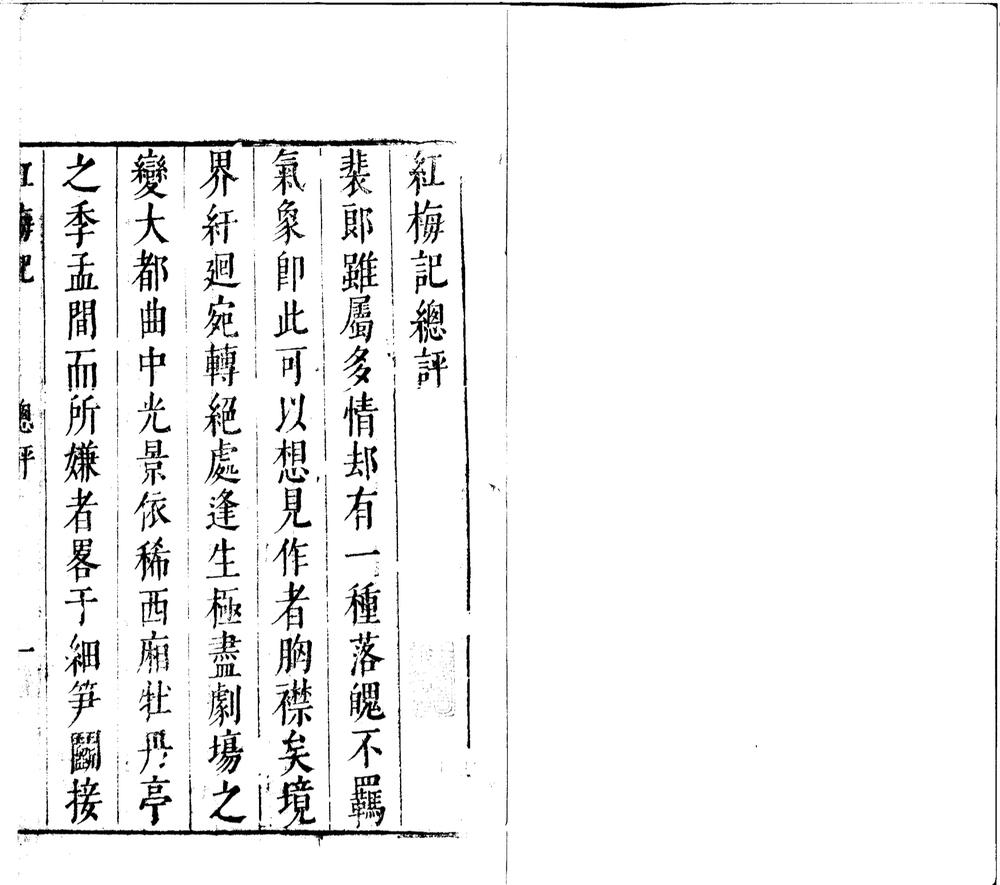 紅梅記總評
裴郎雖屬多情却有一種落魄不羈
氣象卽此可以想見作者胸襟矣境
界紆廻宛轉絕處逢生極盡劇塲之
變大都曲中光景依稀西廂牡丹亭
之季孟間而所嫌者畧于細笋鬭接
紅梅記 總評 一